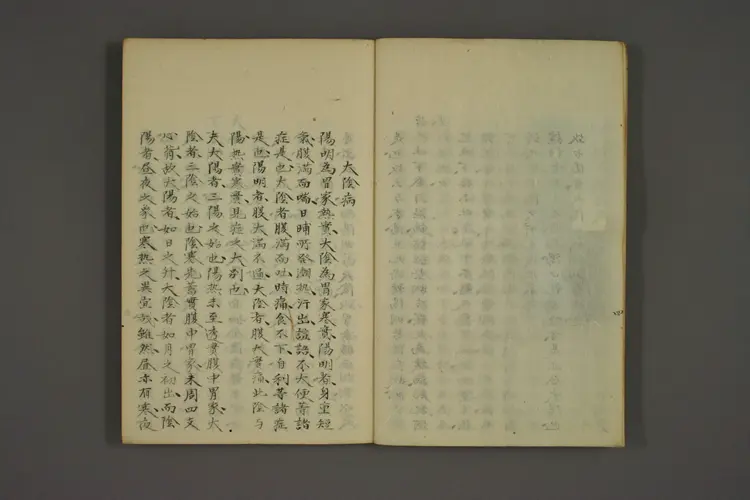 太陰病
陽明為胃家熱實太陰為胃家寒實陽明者身重短
氣腹滿而喘日晡所發潮熱汗出讝語不大便等諸
症是也太陰者腹滿而吐時痛食不下自利等諸症
是也陽明者腹大滿不通太陰者腹大實痛此陰与
陽熱實寒實見症之大別也
夫太陽者三陽之始也陽熱未至透實腹中胃家太
陰者三陰之始也陰寒先著實腹中胃家未周四支
心背故太陽者如日之升太陰者如月之初出而陰
陽者昼夜之象也寒熱之異宜哉雖然昼亦有寒夜